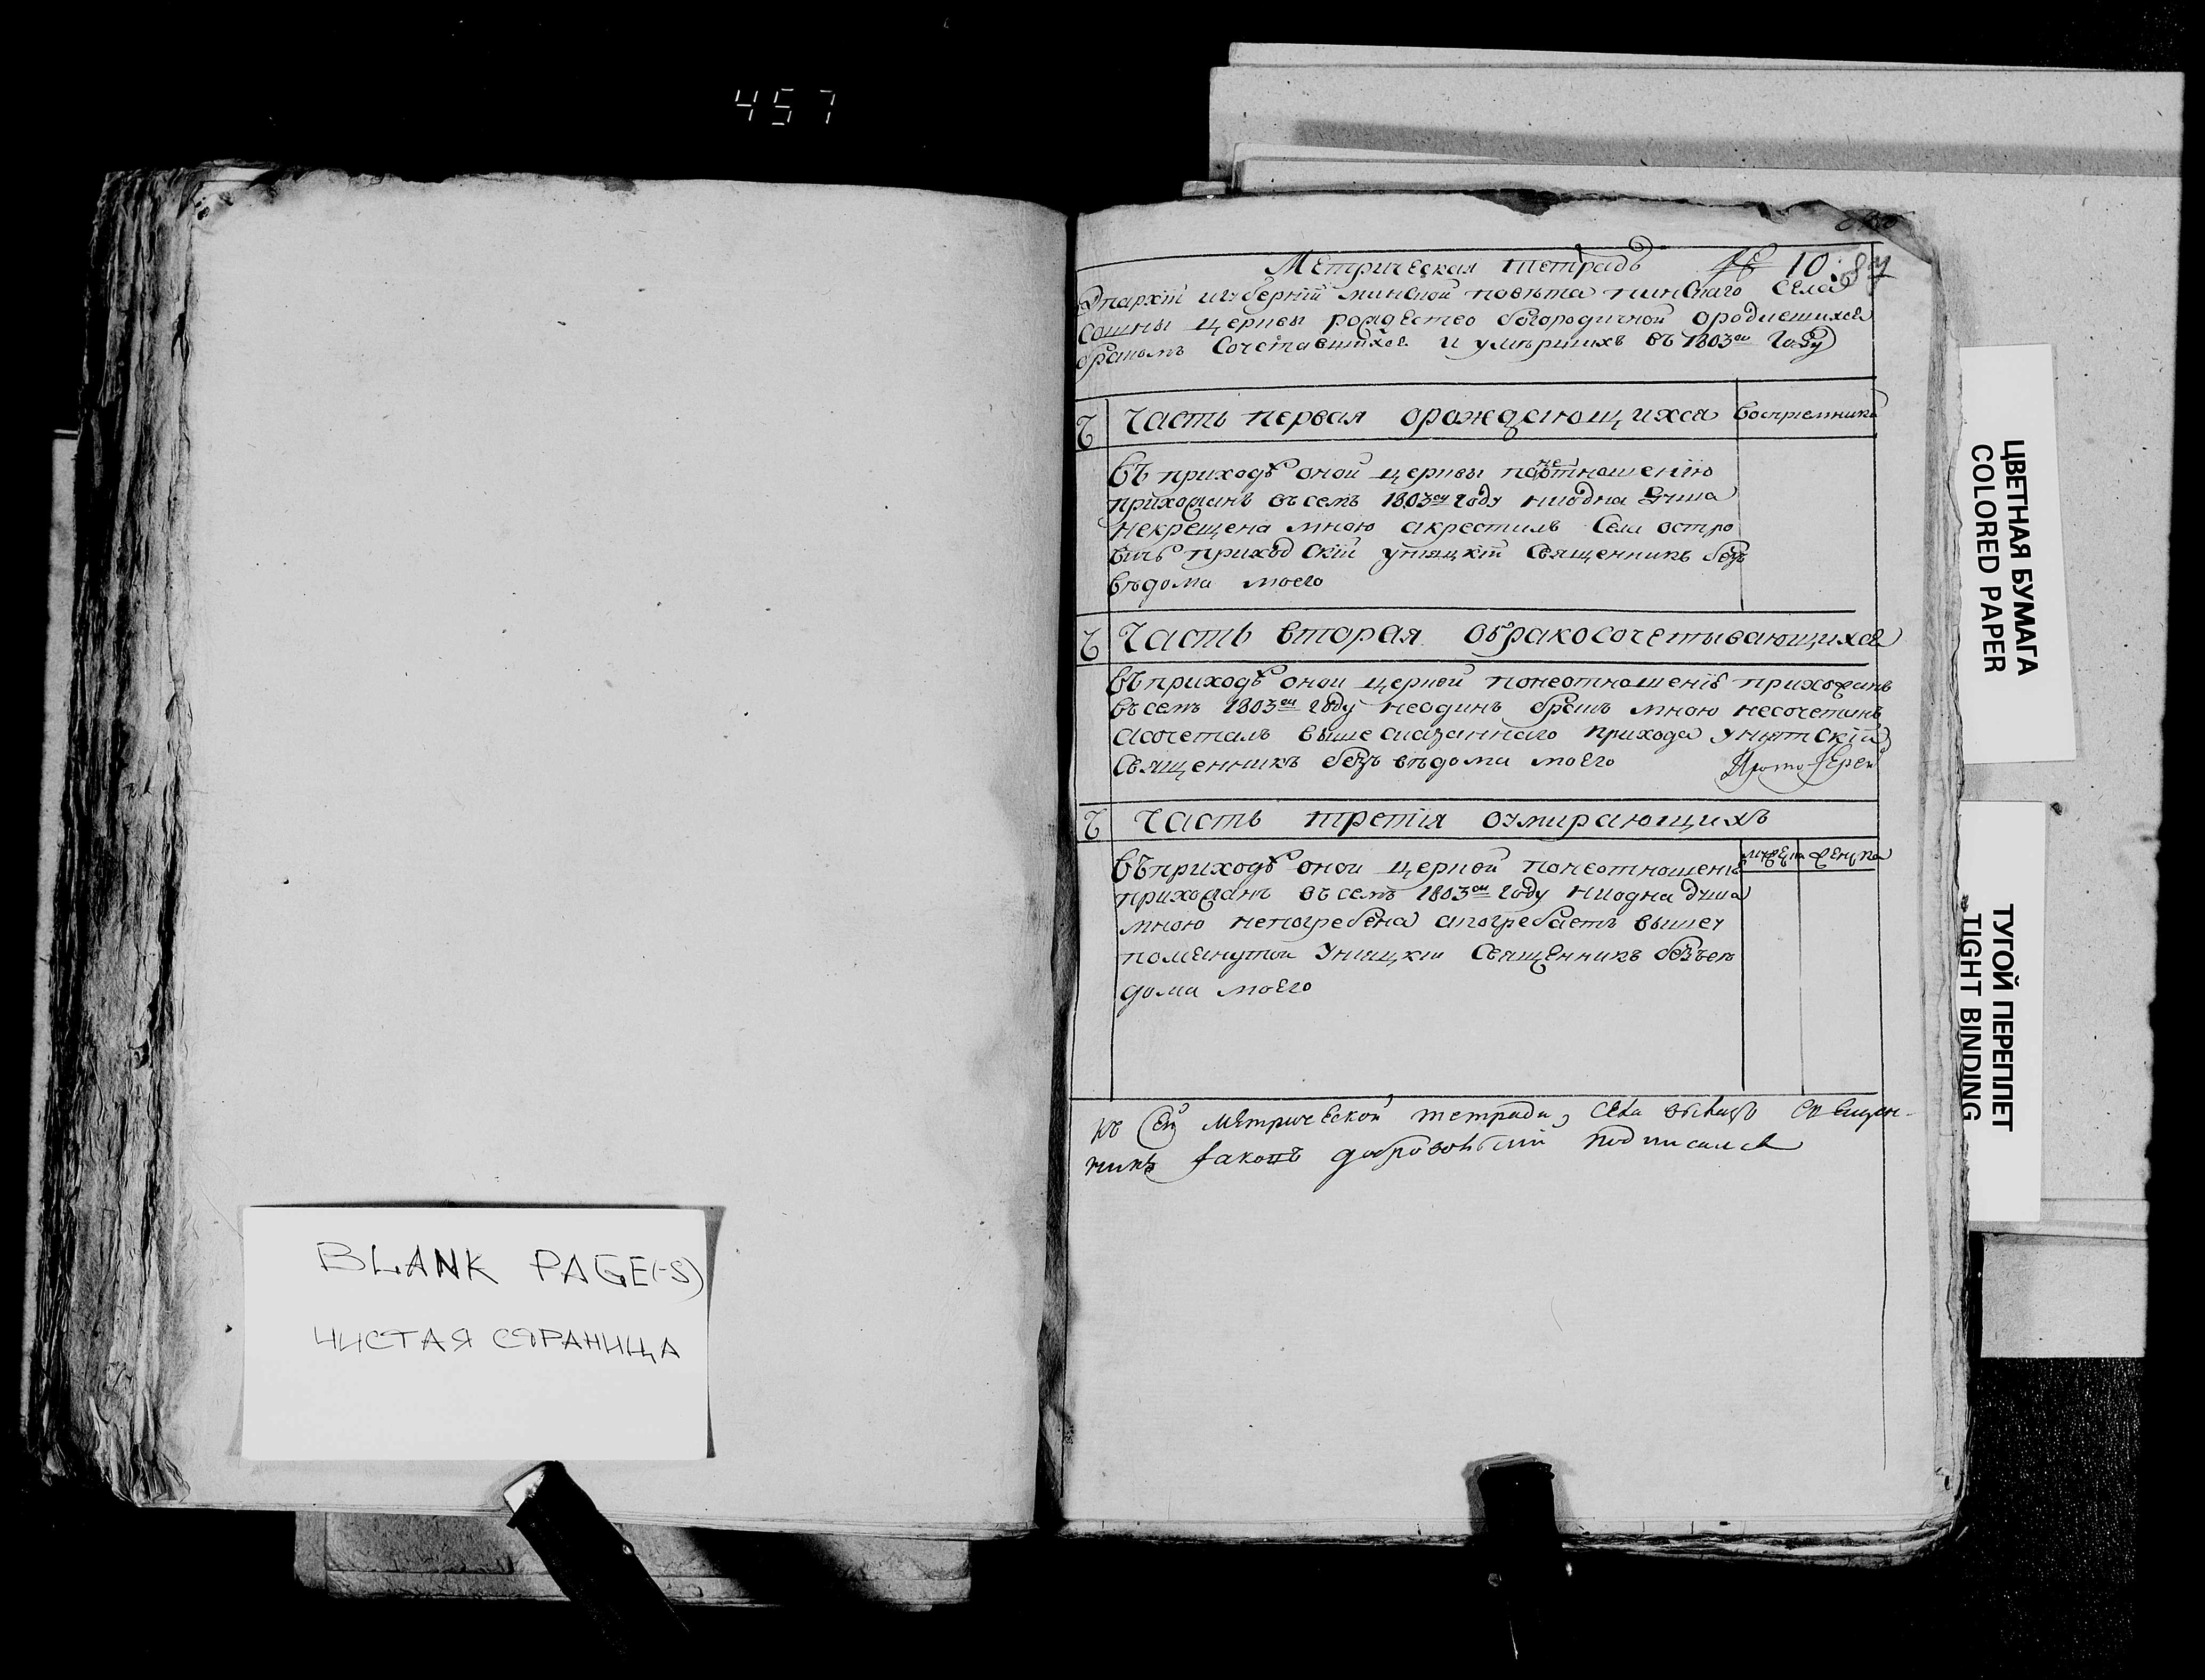 457
BLANK PAGE(-S)
ЧИСТАЯ СТРАНИЦА
Метрическая тетрадь № 10: 87
Эпархіи игуберніи минской повѣта пинскаго села
сошны церквы рождество богородичной ородившихся
бракомъ Сочетавшихся и умѣршихъ въ 1803ом Году
Ч Часть первая орождающихся Восприемники
Въ приходѣ оной церквы понеотношенію
прихожанъ въ семъ 1803ом году ниодна душа
некрещена мною акрестилъ Села остро
вичь приходскій унѩцкій Священникъ безъ
вѣдома моего
Ч Часть вторая обракосочетывающихся
Въ приходѣ оной церквй понеотношеніѣ прихожанъ
въ семъ 1803ом году неодинъ бракъ мною несочетанъ
асочеталъ выше сказаннаго прихода унѩтскій
Священникъ безъ вѣдома моего Прото Іерей
Ч Часть третія оумирающихъ
Въ приходѣ оной церквй понеотношеніѣ
прихожанъ въ семъ 1803ом году ниодна душа
мною непогребена апогребаетъ вышеу
поменутой Унѩцкій Священникъ безъвѣ
дома моего
къ Сей Метрической тетради, села Священ-
никъ Іаковъ подписался
ЦВЕТНАЯ БУМАГА
COLORED PAPER
ТУГОЙ ПЕРЕПЛЕТ
TIGHT BINDING